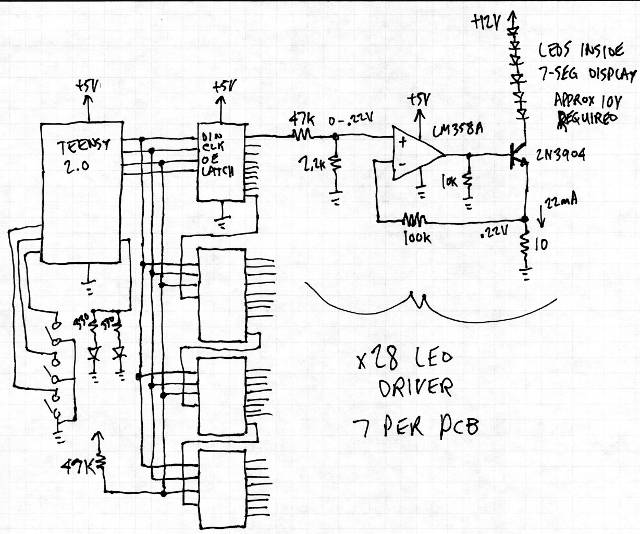 +12V
LEDS INSIDE
7-SEG DISPLAY
APPROX 10V
REQUIRED
+5V
+5V
+5V
TEENSY
2.0
DIN
CLK
OE
LATCH
47K
0-.22V
2.2K
+
-
LM358A
10K
2N3904
100K
.22V
22mA
10
330
330
47K
x28 LED
DRIVER
7 PER PCB